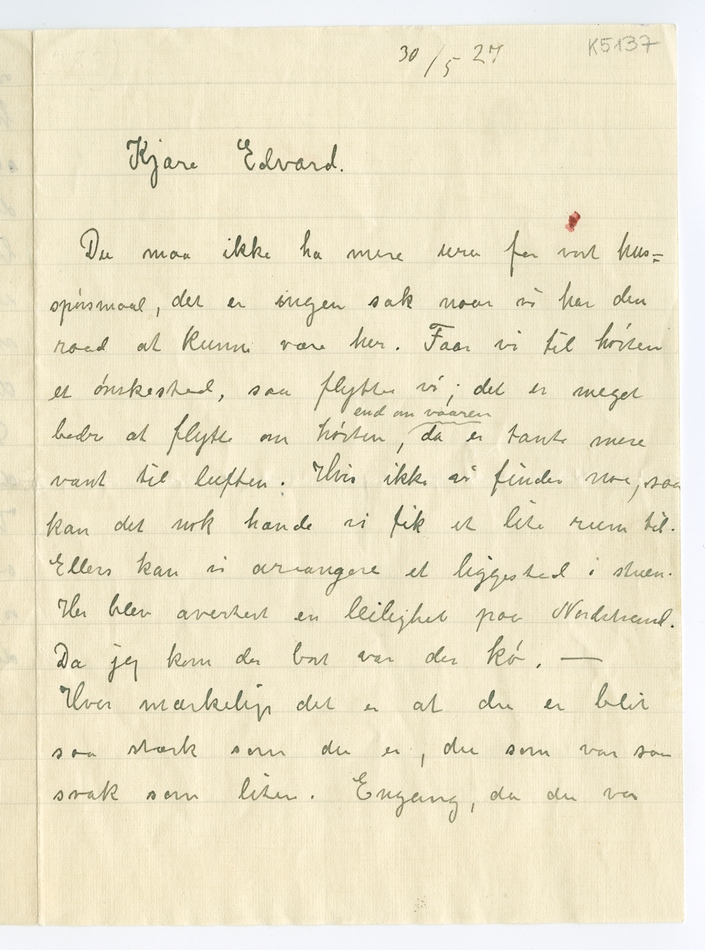 30/5 27
K5137
Kjære Edvard.
Du maa ikke ha mere uro for vort hus=
spørsmaal, det er ingen sak naar vi har den
raad at kunne være her. Faar vi til høsten
et ønskested, saa flytter vi; det er meget
end om vaaren
bedre at flytte om høsten, da er tante mere
vant til luften. Hvis ikke vi finder noe, saa
kan det nok hænde vi fik et lite rum til.
Ellers kan vi arrangere et liggested i stuen.
Her blev avertert en leilighet paa Nordstrand.
Da jeg kom der bort var der kø. —
Hvor mærkelig det er at du er blit
saa stærk som du er, du som var saa
svak som liten. Engang, da du var